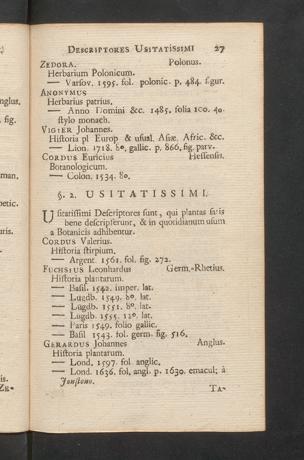 DESCRIPTORES USITATISSIMI 27
ZEDORA. Polonus.
Herbarium Polonicum.
— Varsov. 1595. fol. polonic. p. 484. figur.
ANONYMUS
Herbarius patrius,
— Anno Domini &c. 1485. folia 100. 40.
stylo monach.
VIGIER Johannes.
Historia pl Europ & usual. Asiæ. Afric. &c.
— Lion. 1718. 80. gallic. p. 866, fig. parv.
CORDUS Euricius Hessensis.
Botanologicum.
— Colon. 1534. 80.
§. 2. USITATISSIMI.
Usitatissimi Descriptores sunt, qui plantas satis
bene descripserunt, & in quotidianum usum
a Botanicis adhibentur.
CORDUS Valerius.
Historia stirpium.
— Argent. 1561. fol. fig. 272.
FUCHSIUS Leonhardus Germ.-Rhetius.
Historia plantarum.
— Basil. 1542. imper. lat.
— Lugdb. 1549. 80. lat.
— Lugdb. 1551. 80. lat.
— Lugdb. 1555. 120. lat.
— Paris 1549. folio gallic.
— Basil 1543. fol. germ. fig. 516.
GERARDUS Johannes Anglus.
Historia plantarum.
— Lond. 1597. fol. anglic.
— Lond. 1636. fol. angl. p. 1630. emacul; à
Jonstono.
TA-
nglus.
fig.
man.
petic.
uris.
is.
ZE-